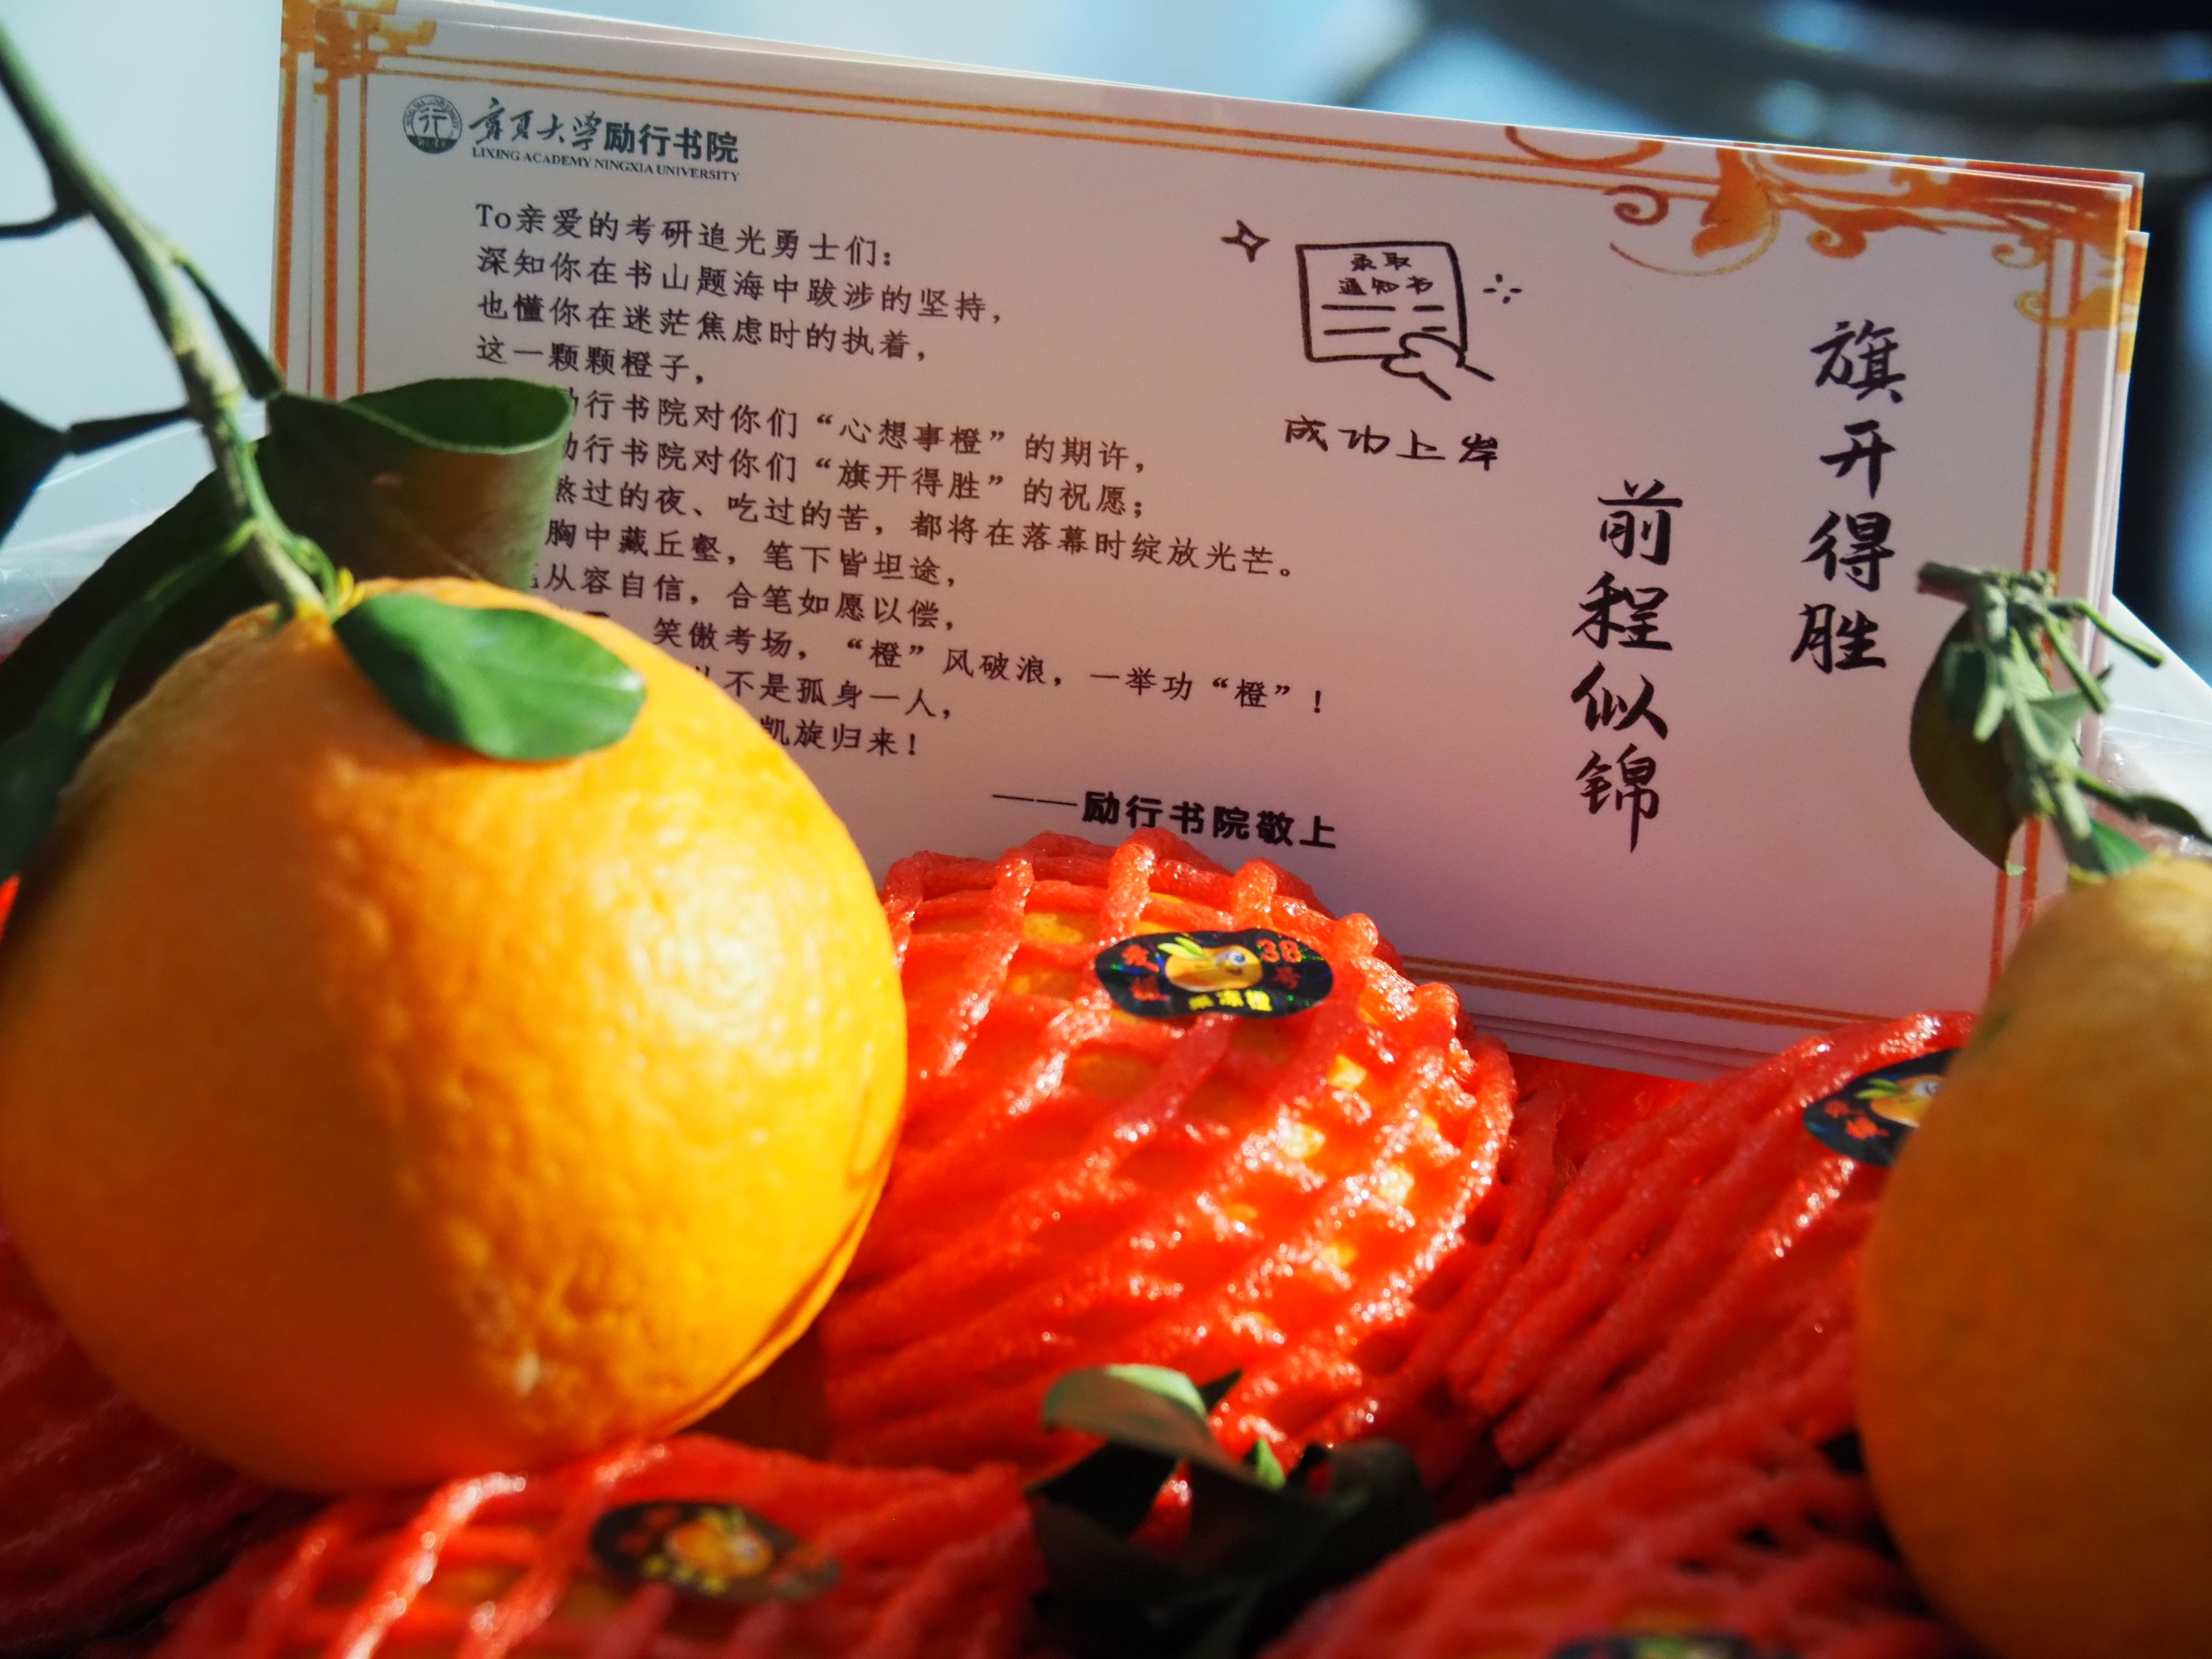 宁夏大学励行书院
LIXING ACADEMY NINGXIA UNIVERSITY
To亲爱的考研追光勇士们：
深知你在书山题海中跋涉的坚持，
也懂你在迷茫焦虑时的执着，
这一颗颗橙子，
励行书院对你们“心想事橙”的期许，
励行书院对你们“旗开得胜”的祝愿；
熬过的夜、吃过的苦，都将在落幕时绽放光芒。
胸中藏丘壑，笔下皆坦途，
从容自信，合笔如愿以偿，
笑傲考场，“橙”风破浪，一举功“橙”！
不是孤身一人，
凯旋归来！
——励行书院敬上
录取
通知书
成功上岸
旗开得胜
前程似锦
爱媛38号
果冻橙